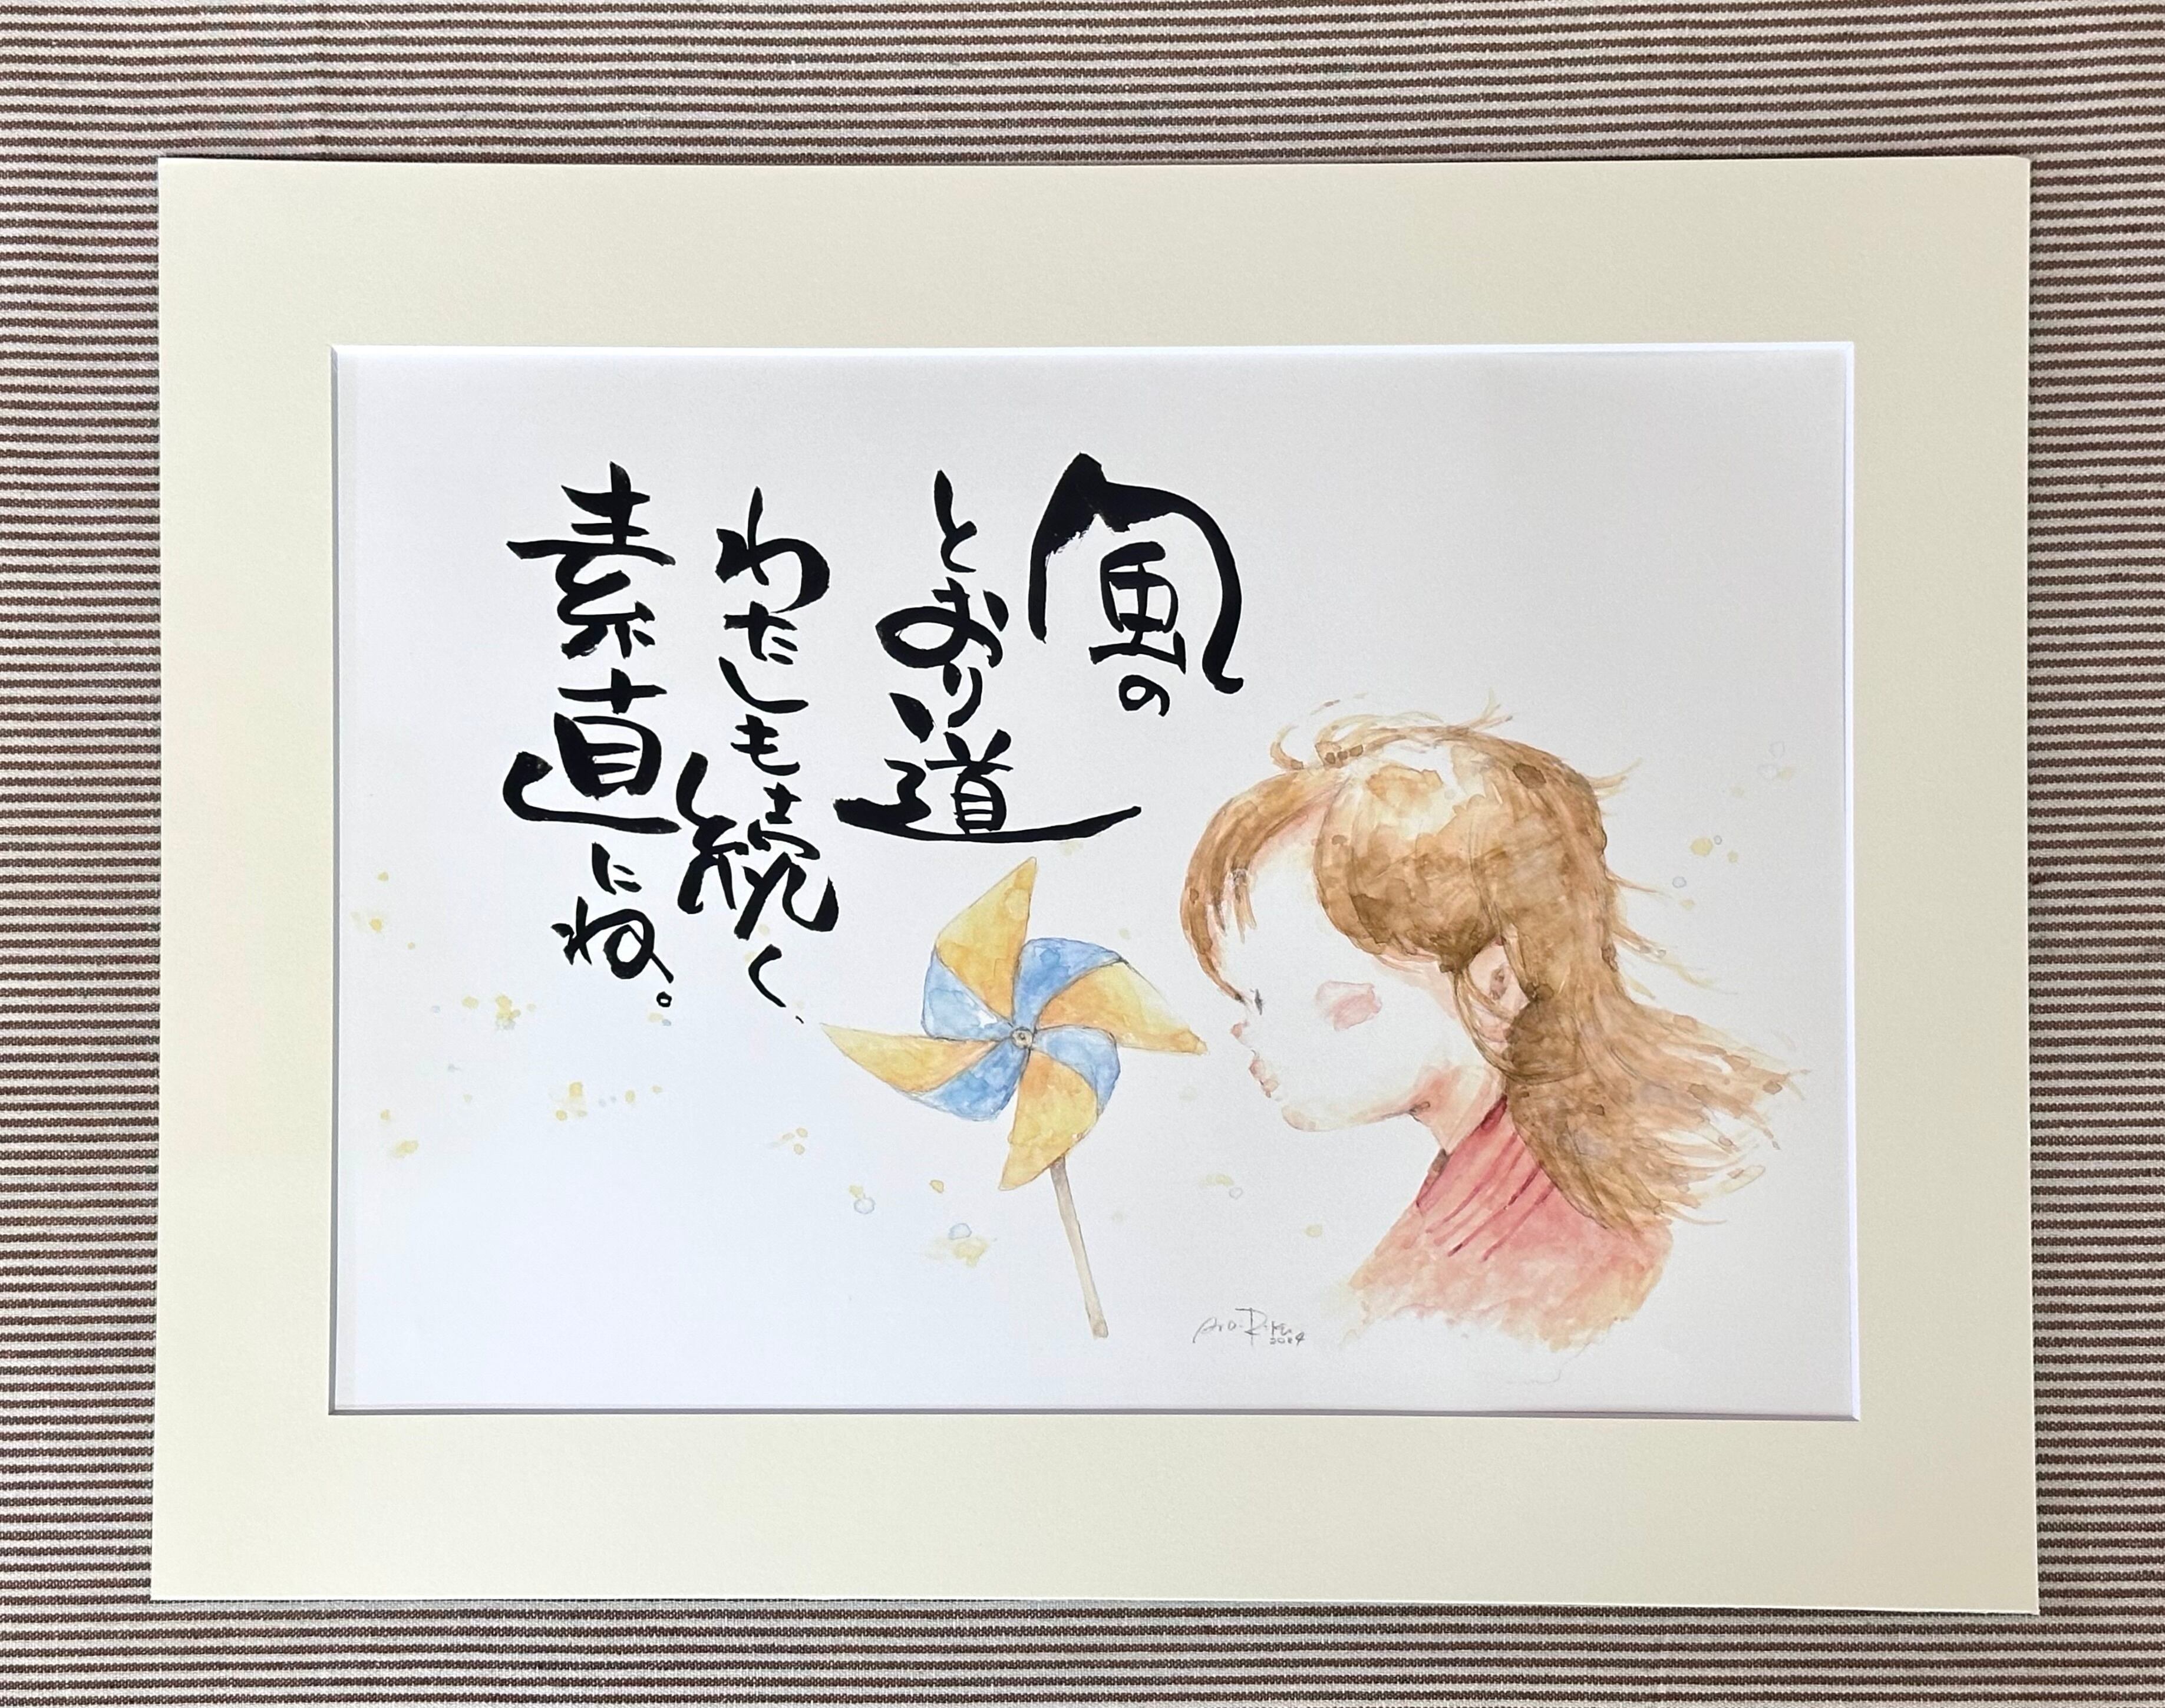 風の
とおり道
わたしも続く、
素直にね。